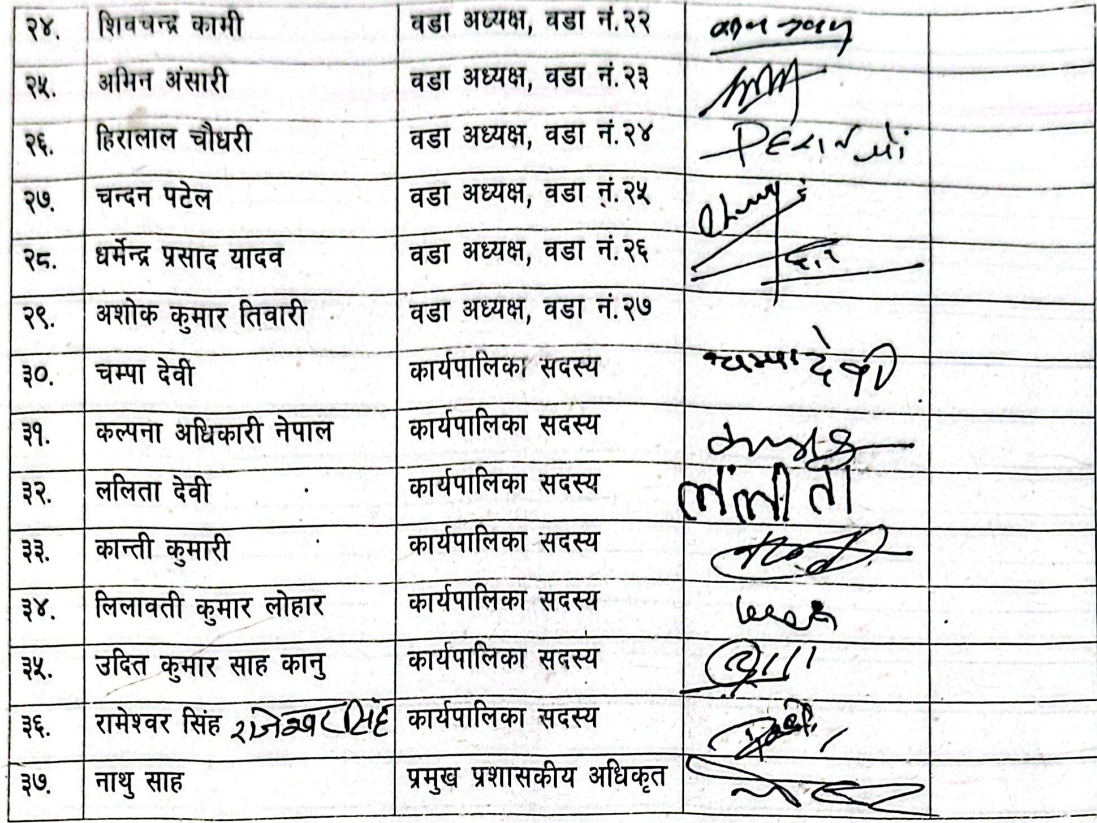 २४. शिवचन्द्र कामी वडा अध्यक्ष, वडा नं.२२
२५. अमिन अंसारी वडा अध्यक्ष, वडा नं.२३
२६. हिरालाल चौधरी वडा अध्यक्ष, वडा नं.२४
२७. चन्दन पटेल वडा अध्यक्ष, वडा नं.२५
२८. धर्मेन्द्र प्रसाद यादव वडा अध्यक्ष, वडा नं.२६
२९. अशोक कुमार तिवारी वडा अध्यक्ष, वडा नं.२७
३०. चम्पा देवी कार्यपालिका सदस्य चम्पा देवी
३१. कल्पना अधिकारी नेपाल कार्यपालिका सदस्य
३२. ललिता देवी कार्यपालिका सदस्य
३३. कान्ती कुमारी कार्यपालिका सदस्य
३४. लिलावती कुमार लोहार कार्यपालिका सदस्य
३५. उदित कुमार साह कानु कार्यपालिका सदस्य
३६. रामेश्वर सिंह कार्यपालिका सदस्य
३७. नाथु साह प्रमुख प्रशासकीय अधिकृत